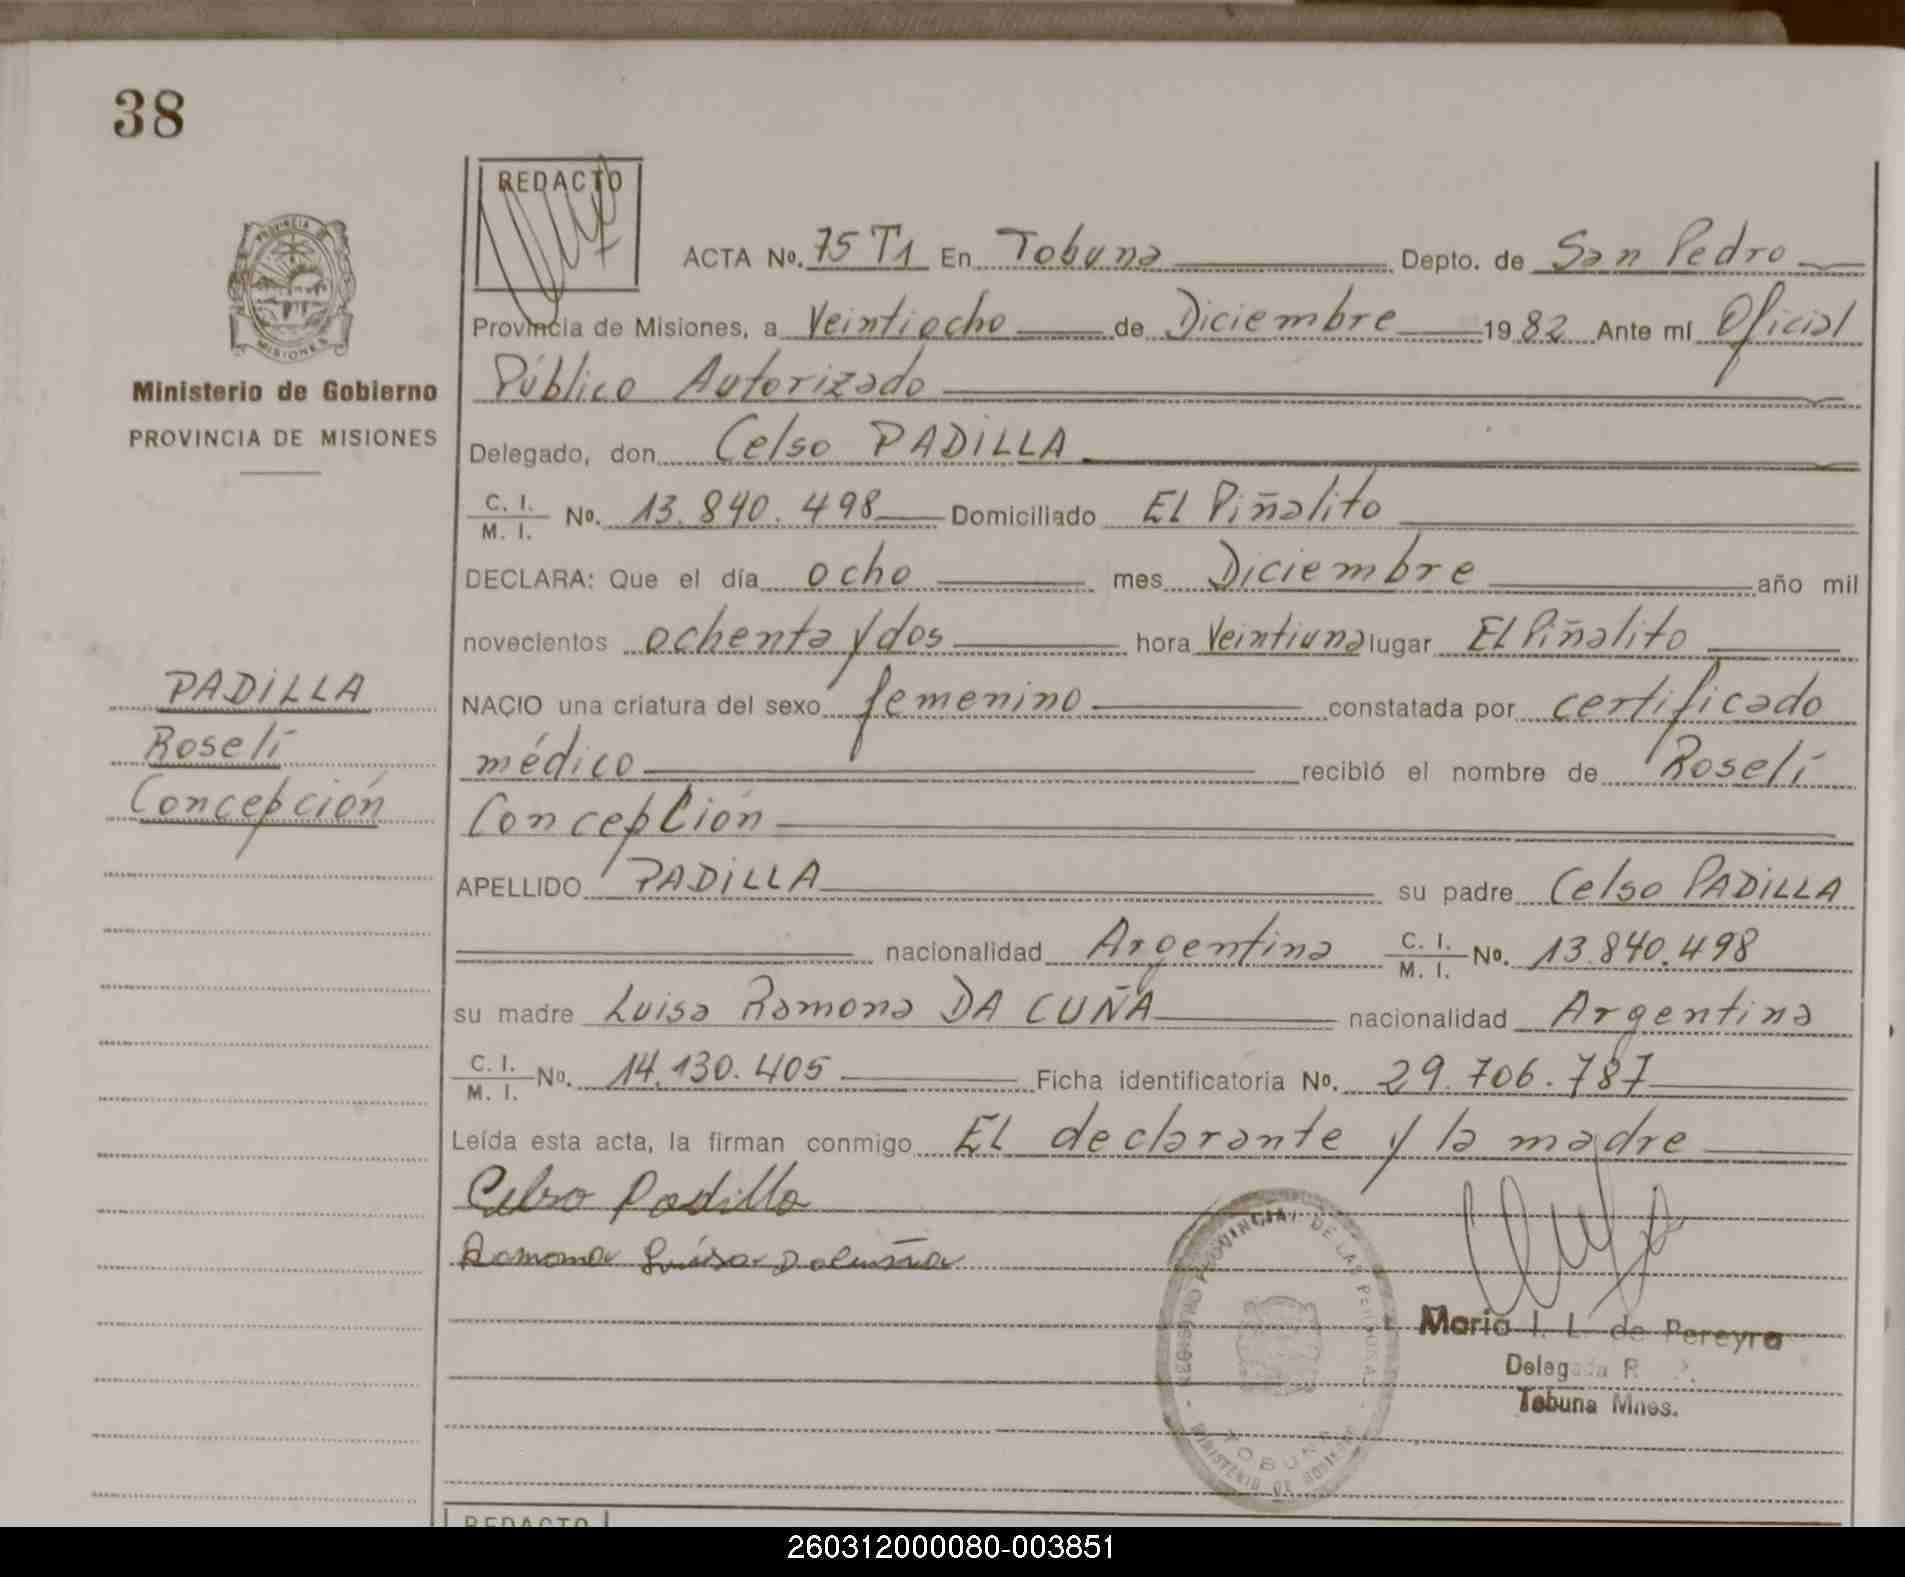 38
REDACTO
PROVINCIA DE
MISIONES
Ministerio de Gobierno
PROVINCIA DE MISIONES
ACTA No. 75 T1 En Tobuna Depto. de San Pedro
Provincia de Misiones, a Veintiocho de Diciembre 1982 Ante mí Oficial
Público Autorizado
Delegado, don Celso PADILLA
C. I.
M. I. No. 13.840.498 Domiciliado El Piñalito
DECLARA: Que el día ocho mes Diciembre año mil
novecientos ochenta y dos hora Veintiuna lugar El Piñalito
NACIO una criatura del sexo femenino constatada por certificado
médico recibió el nombre de Roselí
Concepción
APELLIDO PADILLA su padre Celso PADILLA
nacionalidad Argentina C. I. M. I. No. 13.840.498
su madre Luisa Ramona DA CUÑA nacionalidad Argentina
C. I.
M. I. No. 14.130.405 Ficha identificatoria No. 29.706.787
Leída esta acta, la firman conmigo El declarante y la madre
Celso Padilla
Ramona Luisa Dacuña
PADILLA
Roselí
Concepción
REGISTRO PROVINCIAL DE LAS PERSONAS
TOBUNA
MINISTERIO DE GOBIERNO
María I. L. de Pereyra
Delegada R.
Tobuna Mnes.
REDACTO
260312000080-003851